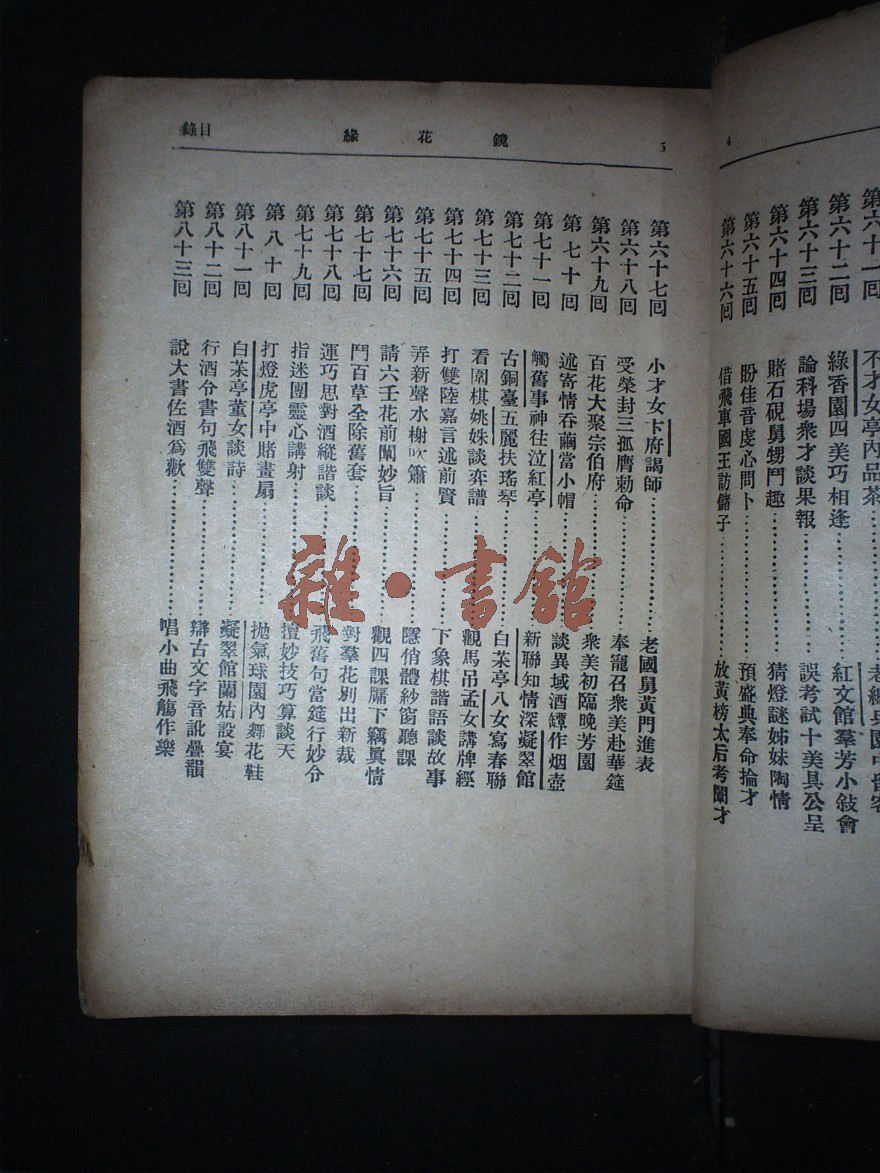 4
第六十一回 不才女亭內品茶
第六十二回 綠香園四美巧相逢 紅文館羣芳小敍會
第六十三回 論科場衆才談果報 誤考試十美具公呈
第六十四回 賭石硯舅甥鬥趣 猜燈謎姊妹陶情
第六十五回 盼佳音虔心問卜 預盛典奉命掄才
第六十六回 借飛車國王訪儲子 放黃榜太后考閨才
5 鏡花緣 目錄
第六十七回 小才女卞府謁師 老國舅黃門進表
第六十八回 受榮封三孤膺勅命 奉寵召衆美赴華筵
第六十九回 百花大聚宗伯府 衆美初臨晚芳園
第七十回 述寄情吞繭當小帽 談異域酒罈作烟壺
第七十一回 觸舊事神往泣紅亭 新聯知情深凝翠館
第七十二回 古銅臺五麗扶瑤琴 白茉亭八女寫春聯
第七十三回 看圍棋姚姝談弈譜 觀馬吊孟女講牌經
第七十四回 打雙陸嘉言述前賢 下象棋諧語談故事
第七十五回 弄新聲水榭吹簫 隱俏體紗窗聽課
第七十六回 請六壬花前闡妙旨 觀四課牖下竊眞情
第七十七回 鬥百草全除舊套 對羣花別出新裁
第七十八回 運巧思對酒縱諧談 飛舊句當筵行妙令
第七十九回 指迷團靈心講射 擅妙技巧算談天
第八十回 打燈虎亭中賭畫扇 拋氣球園內舞花鞋
第八十一回 白茉亭董女談詩 凝翠館蘭姑設宴
第八十二回 行酒令書句飛雙聲 辯古文字音訛疊韻
第八十三回 說大書佐酒爲歡 唱小曲飛觴作樂
雜·書館